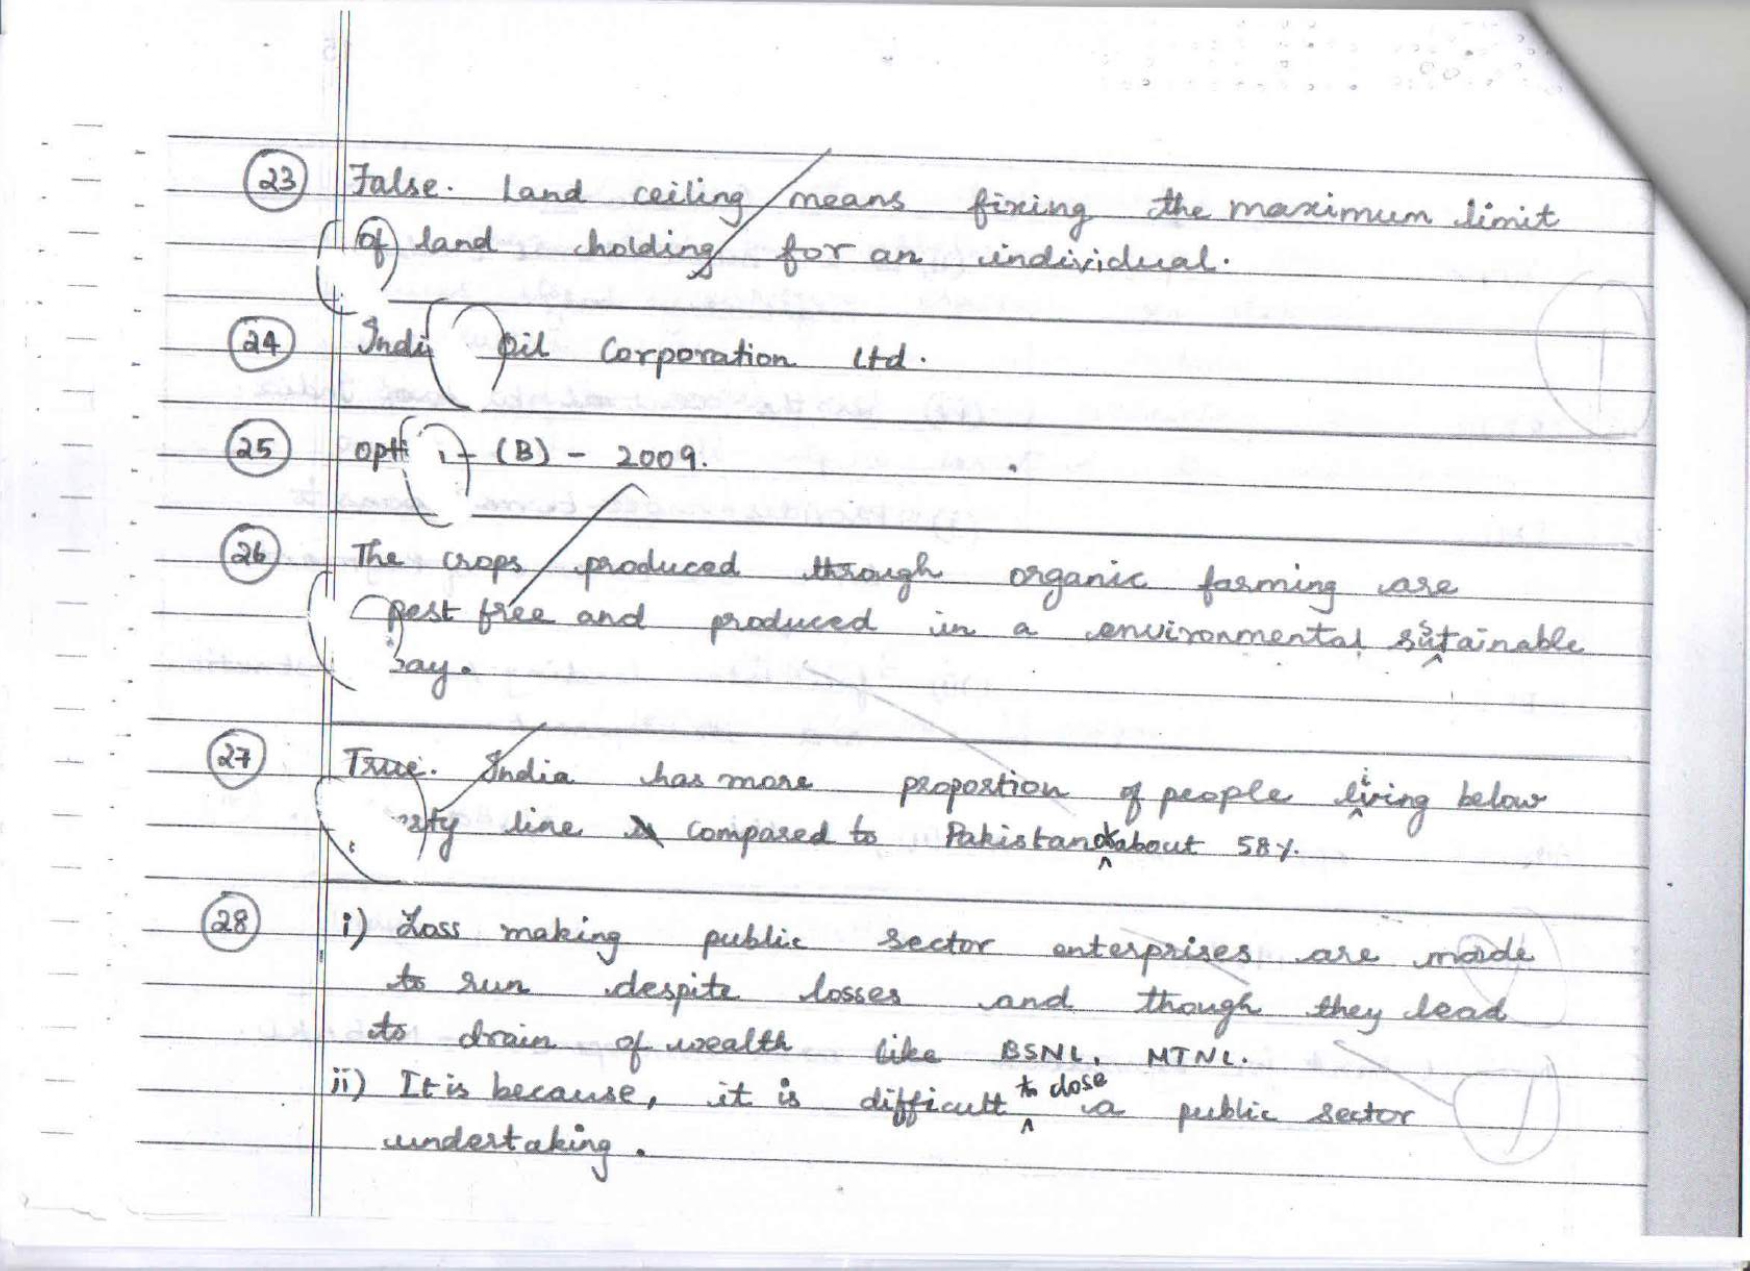 23 False. Land ceiling means fixing the maximum limit
of land holding for an individual.
24 Indi Oil Corporation Ltd.
25 opti - (B) - 2009.
26 The crops produced through organic farming are
pest free and produced in a environmental sustainable
way.
27 True. India has more proportion of people living below
line compared to Pakistan about 58%.
28 i) Loss making public sector enterprises are made
to run despite losses and though they lead
to drain of wealth like BSNL, MTNL.
ii) It is because, it is difficult to close a public sector
undertaking.